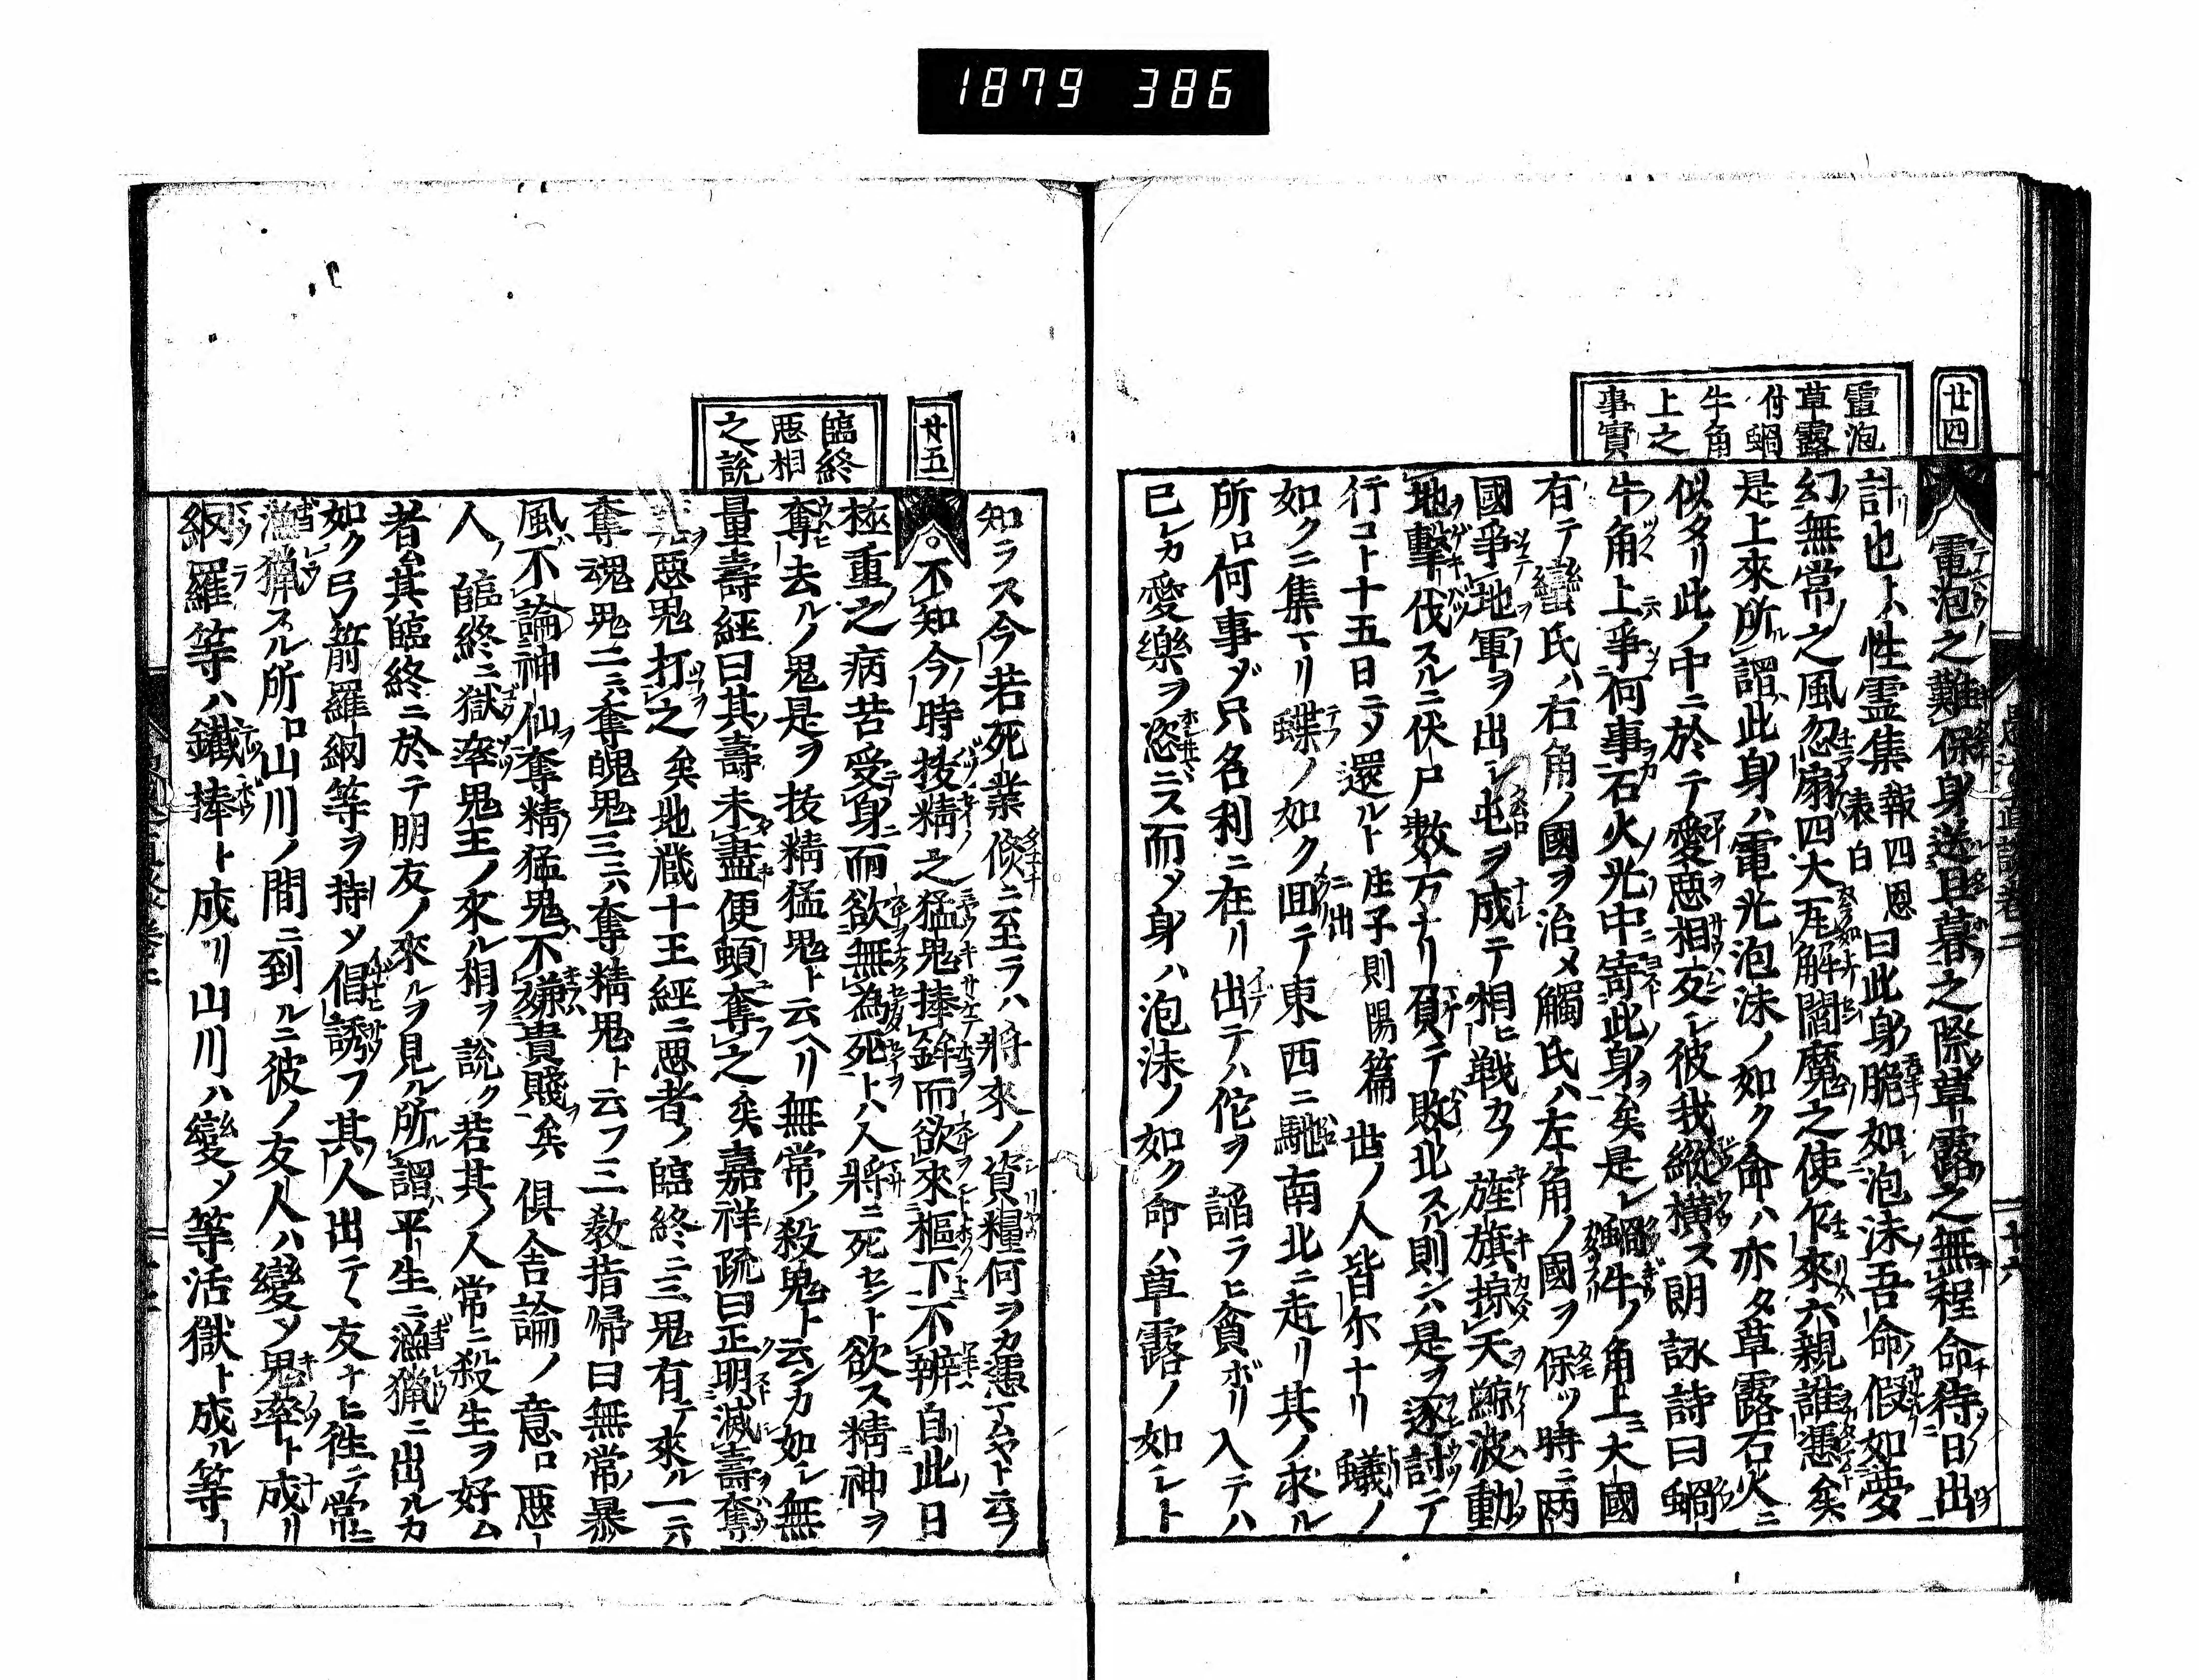 1879 386
廿四
電泡
草露
付蝸
牛角
上之
事實
電泡之難保身送旦暮之際草露之無程命待日出
計也ト八性霊集報四恩表白曰此身脆如泡沫吾命假如夢
幻無常之風忽扇四大瓦解閻魔之使乍來六親誰憑矣
是上來所謂此身ハ電光泡沫ノ如ク命ハ亦タ草露石火ニ
似タリ此ノ中ニ於テ愛惡相友レ彼我縱横ス朗詠詩曰蝸
牛角上爭何事石火光中寄此身矣是レ蝸牛ノ角上ニ大國
有テ蠻氏ハ右角ノ國ヲ治メ觸氏ハ左角ノ國ヲ保ツ時ニ兩
國爭地軍ヲ出シ屯ヲ成テ相ヒ戰カフ旌旗掠天鯨波動
地擊伐スルニ伏尸数万ナリ負テ敗北スル則ンハ是ヲ逐討テ
行コト十五日ニメ還ルト庄子則陽篇ニ出世ノ人皆尓ナリ蟻ノ
如クニ集マリ蝶ノ如ク回テ東西ニ馳南北ニ走リ其ノ求ル
所ロ何事ゾ只名利ニ在リ出テハ佗ヲ謟ラヒ貪ボリ入テハ
已レカ愛樂ヲ恣ニス而メ身ハ泡沫ノ如ク命ハ草露ノ如シト
知ラス今若死業倏ニ至ラハ將來ノ資糧何ヲカ憑ムヤト云フ
廿五
臨終
惡相
之說
不知今時抜精之猛鬼捧鉾而欲來樞下不辨自此日
極重之病苦受身而欲無為死ト八人將ニ死セント欲ス精神ヲ
奪去ルノ鬼是ヲ抜精猛鬼ト云ヘリ無常ノ殺鬼ト云ンカ如シ無
量壽經曰其壽未盡便頓奪之矣嘉祥疏曰正明滅壽奪
惡鬼打之矣地蔵十王經ニ惡者ノ臨終ニ三鬼有テ來ル一ニハ
奪魂鬼二ニハ奪魄鬼三ニハ奪精鬼ト云フ三教指帰曰無常暴
風不論神仙奪精猛鬼不嫌貴賤矣倶舎論ノ意ロ惡
人ノ臨終ニ獄卒鬼主ノ來ル相ヲ説ク若其ノ人常ニ殺生ヲ好ム
者ハ其臨終ニ於テ朋友ノ來ルヲ見ル所謂平生ニ漁獵ニ出ルカ
如ク弓箭羅網等ヲ持ソ倡誘フ其人出テヽ友ナヒ徃テ常ニ
漁獵スル所ロ山川ノ間ニ到ルニ彼ノ友人ハ變ソ鬼卒ト成リ
網羅等ハ鐵捧ト成リ山川ハ變ソ等活獄ト成ル等